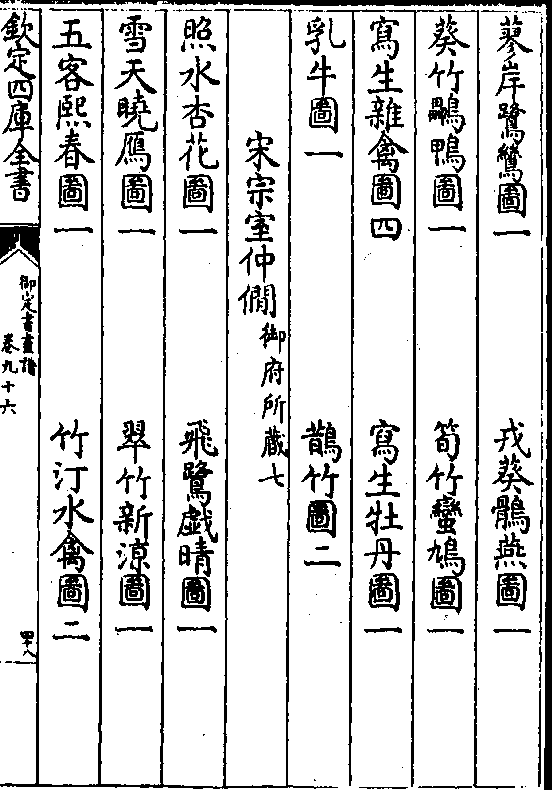 蓼岸鷺鷥圖一　戎葵鶻燕圖一
葵竹鴨圖一　筍竹蠻鳩圖一
寫生雜禽圖四　寫生牡丹圖一
乳牛圖一　鵲竹圖二
宋宗室仲僩御府所藏七
照水杏花圖一　飛鷺戯晴圖一
雪天曉鴈圖一　翠竹新凉圖一
五客熙春圖一　竹汀水禽圖二
欽定四庫全書
御定書畫譜
卷九十六
四十八